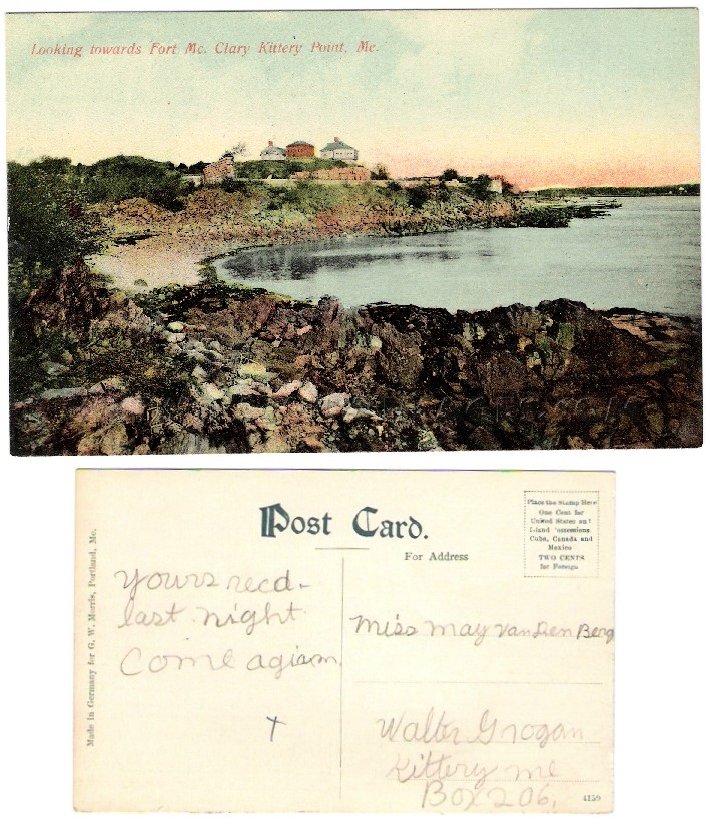 Looking towards Fort Mc. Clary Kittery Point, Me.
Post Card.
For Address
Place the Stamp Here
One Cent for
United States and
Island Possessions
Cuba, Canada and
Mexico
TWO CENTS
for Foreign
Made in Germany for G. W. Morris, Portland, Me.
Yours recd-
last night
Come agiam
Miss May VanDen Berg
Walter Grogan
Kittery me
Box 206,
4159